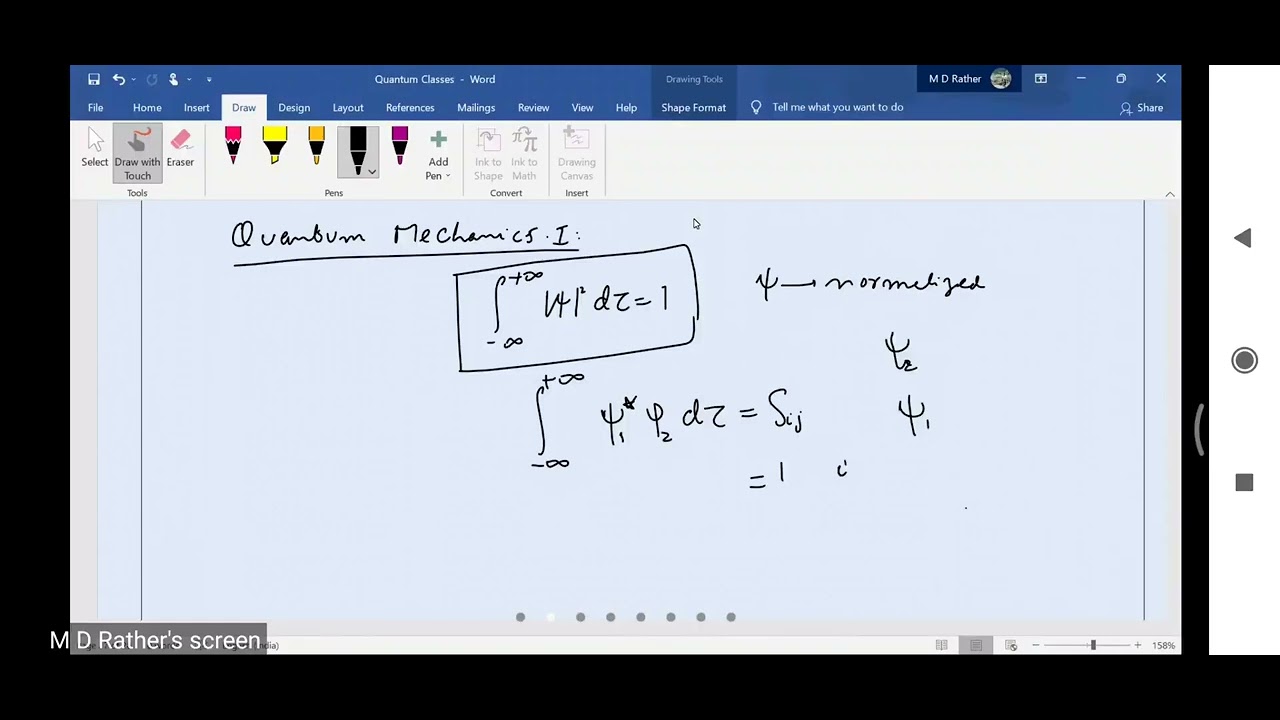 Quantum Classes - Word
Drawing Tools
M D Rather
File Home Insert Draw Design Layout References Mailings Review View Help Shape Format Tell me what you want to do Share
Select Draw with Touch Eraser Add Pen Ink to Shape Ink to Math Drawing Canvas
Tools Pens Convert Insert
Quantum Mechanics.I:
∫_{-∞}^{+∞} |ψ|² dτ = 1 ψ → normelized
ψ₂
∫_{-∞}^{+∞} ψ₁* φ₂ dτ = δij ψ₁
= 1 i
M D Rather's screen
158%